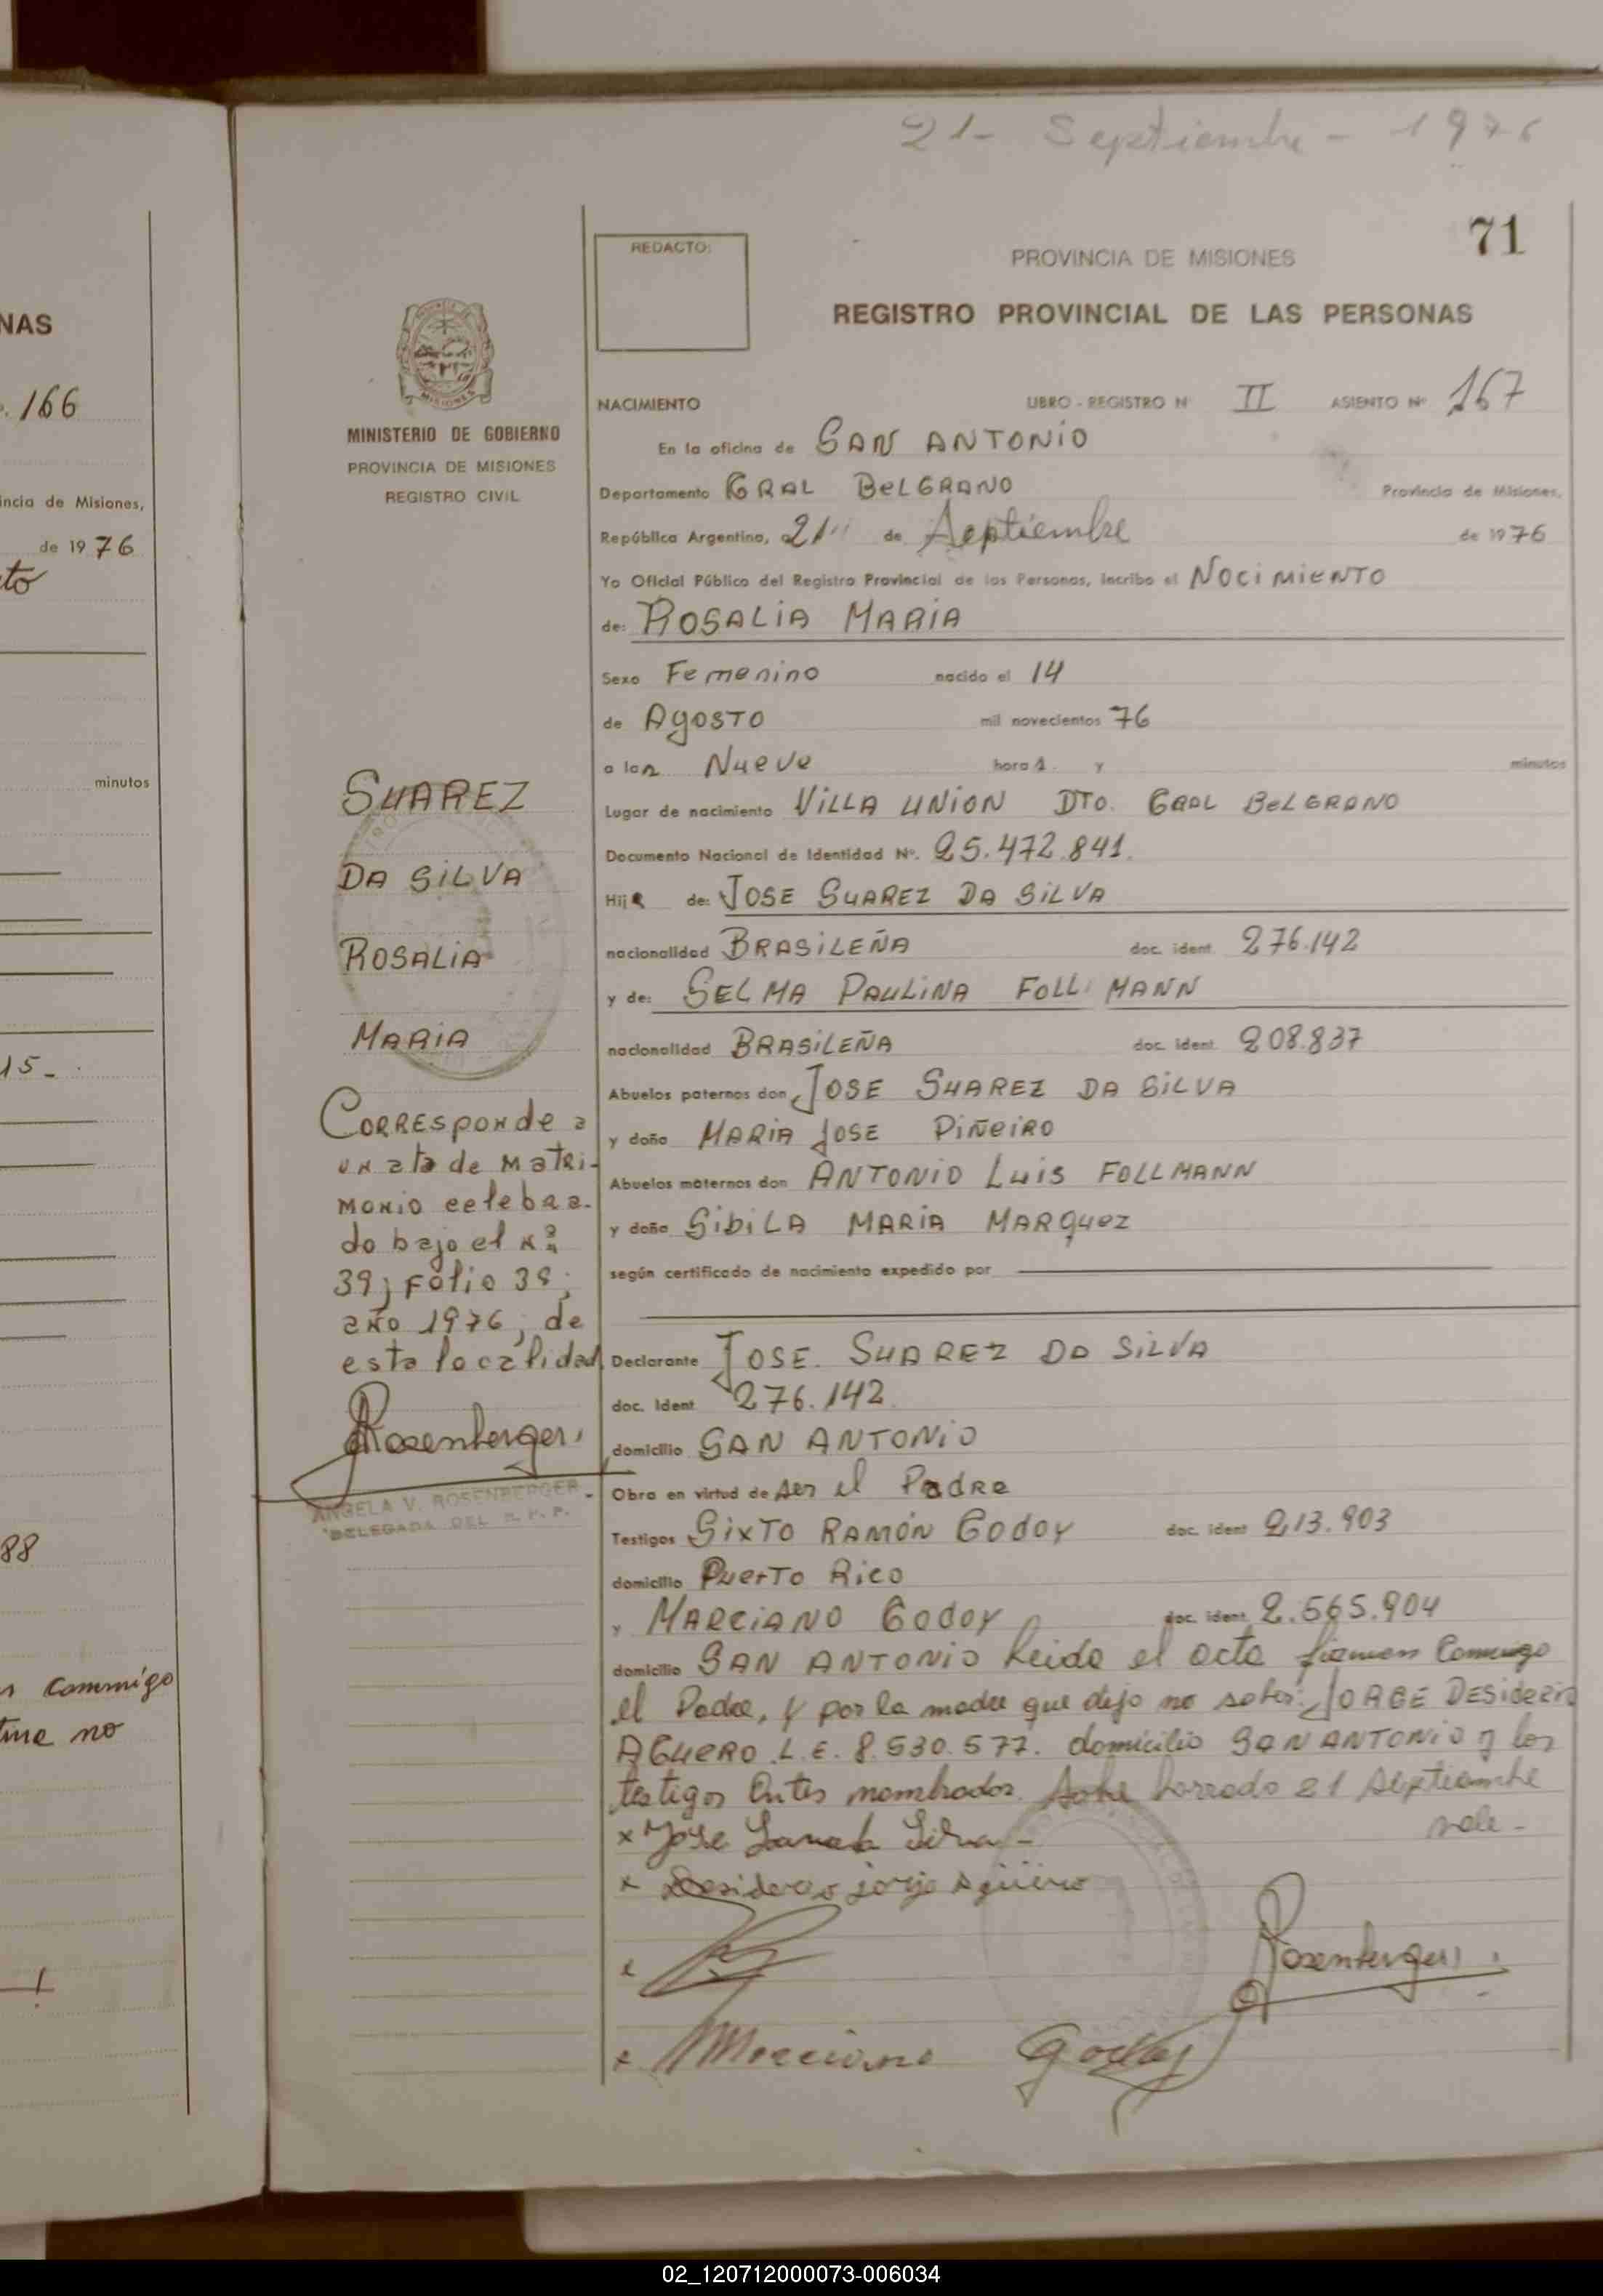 21- Septiembre - 1976
71
REDACTO:
PROVINCIA DE MISIONES
REGISTRO PROVINCIAL DE LAS PERSONAS
MINISTERIO DE GOBIERNO
PROVINCIA DE MISIONES
REGISTRO CIVIL
NACIMIENTO LIBRO - REGISTRO Nº II ASIENTO Nº 167
En la oficina de SAN ANTONIO
Departamento GRAL BELGRANO Provincia de Misiones,
República Argentina, a 21 de Septiembre de 1976
Yo Oficial Público del Registro Provincial de las Personas, inscribo el NOCIMIENTO
de: ROSALIA MARIA
Sexo Femenino nacido el 14
de AGOSTO mil novecientos 76
a las Nueve horas y minutos
Lugar de nacimiento VILLA UNION DTO. GRAL BELGRANO
Documento Nacional de Identidad Nº. 25.472.841.
Hija de: JOSE SUAREZ DA SILVA
nacionalidad BRASILEÑA doc. ident. 276.142
y de: SELMA PAULINA FOLLMANN
nacionalidad BRASILEÑA doc. ident. 208.837
Abuelos paternos don JOSE SUAREZ DA SILVA
y doña MARIA JOSE PIÑEIRO
Abuelos maternos don ANTONIO LUIS FOLLMANN
y doña SIBILA MARIA MARQUEZ
según certificado de nacimiento expedido por
Declarante JOSE. SUAREZ DA SILVA
doc. Ident. 276.142
domicilio SAN ANTONIO
Obra en virtud de ser el Padre
Testigos SIXTO RAMÓN GODOY doc. ident 213.903
domicilio Puerto Rico
y MARCIANO GODOY doc. ident. 2.565.904
domicilio SAN ANTONIO Leida el acta firman Conmigo
el Padre, y por la madre que dejo no saber: JORGE DESIDERIO
AGUERO L.E. 8.530.577. domicilio SAN ANTONIO y los
testigos Antes nombrados. Sobre borrado 21 Septiembre
vale -
x José Silva -
x Desiderio jorge Agüero
x
Rosenberger
x Marciano Godoy
SUAREZ
DA SILVA
ROSALIA
MARIA
CORRESponde a
un acta de Matri-
monio celebra-
do bajo el nº
39; Folio 39;
año 1976, de
esta localidad
Rosenberger
ANGELA V. ROSENBERGER
DELEGADA DEL R. P. P.
NAS
166
incia de Misiones,
de 1976
to
minutos
15-
88
commigo
no
02_120712000073-006034